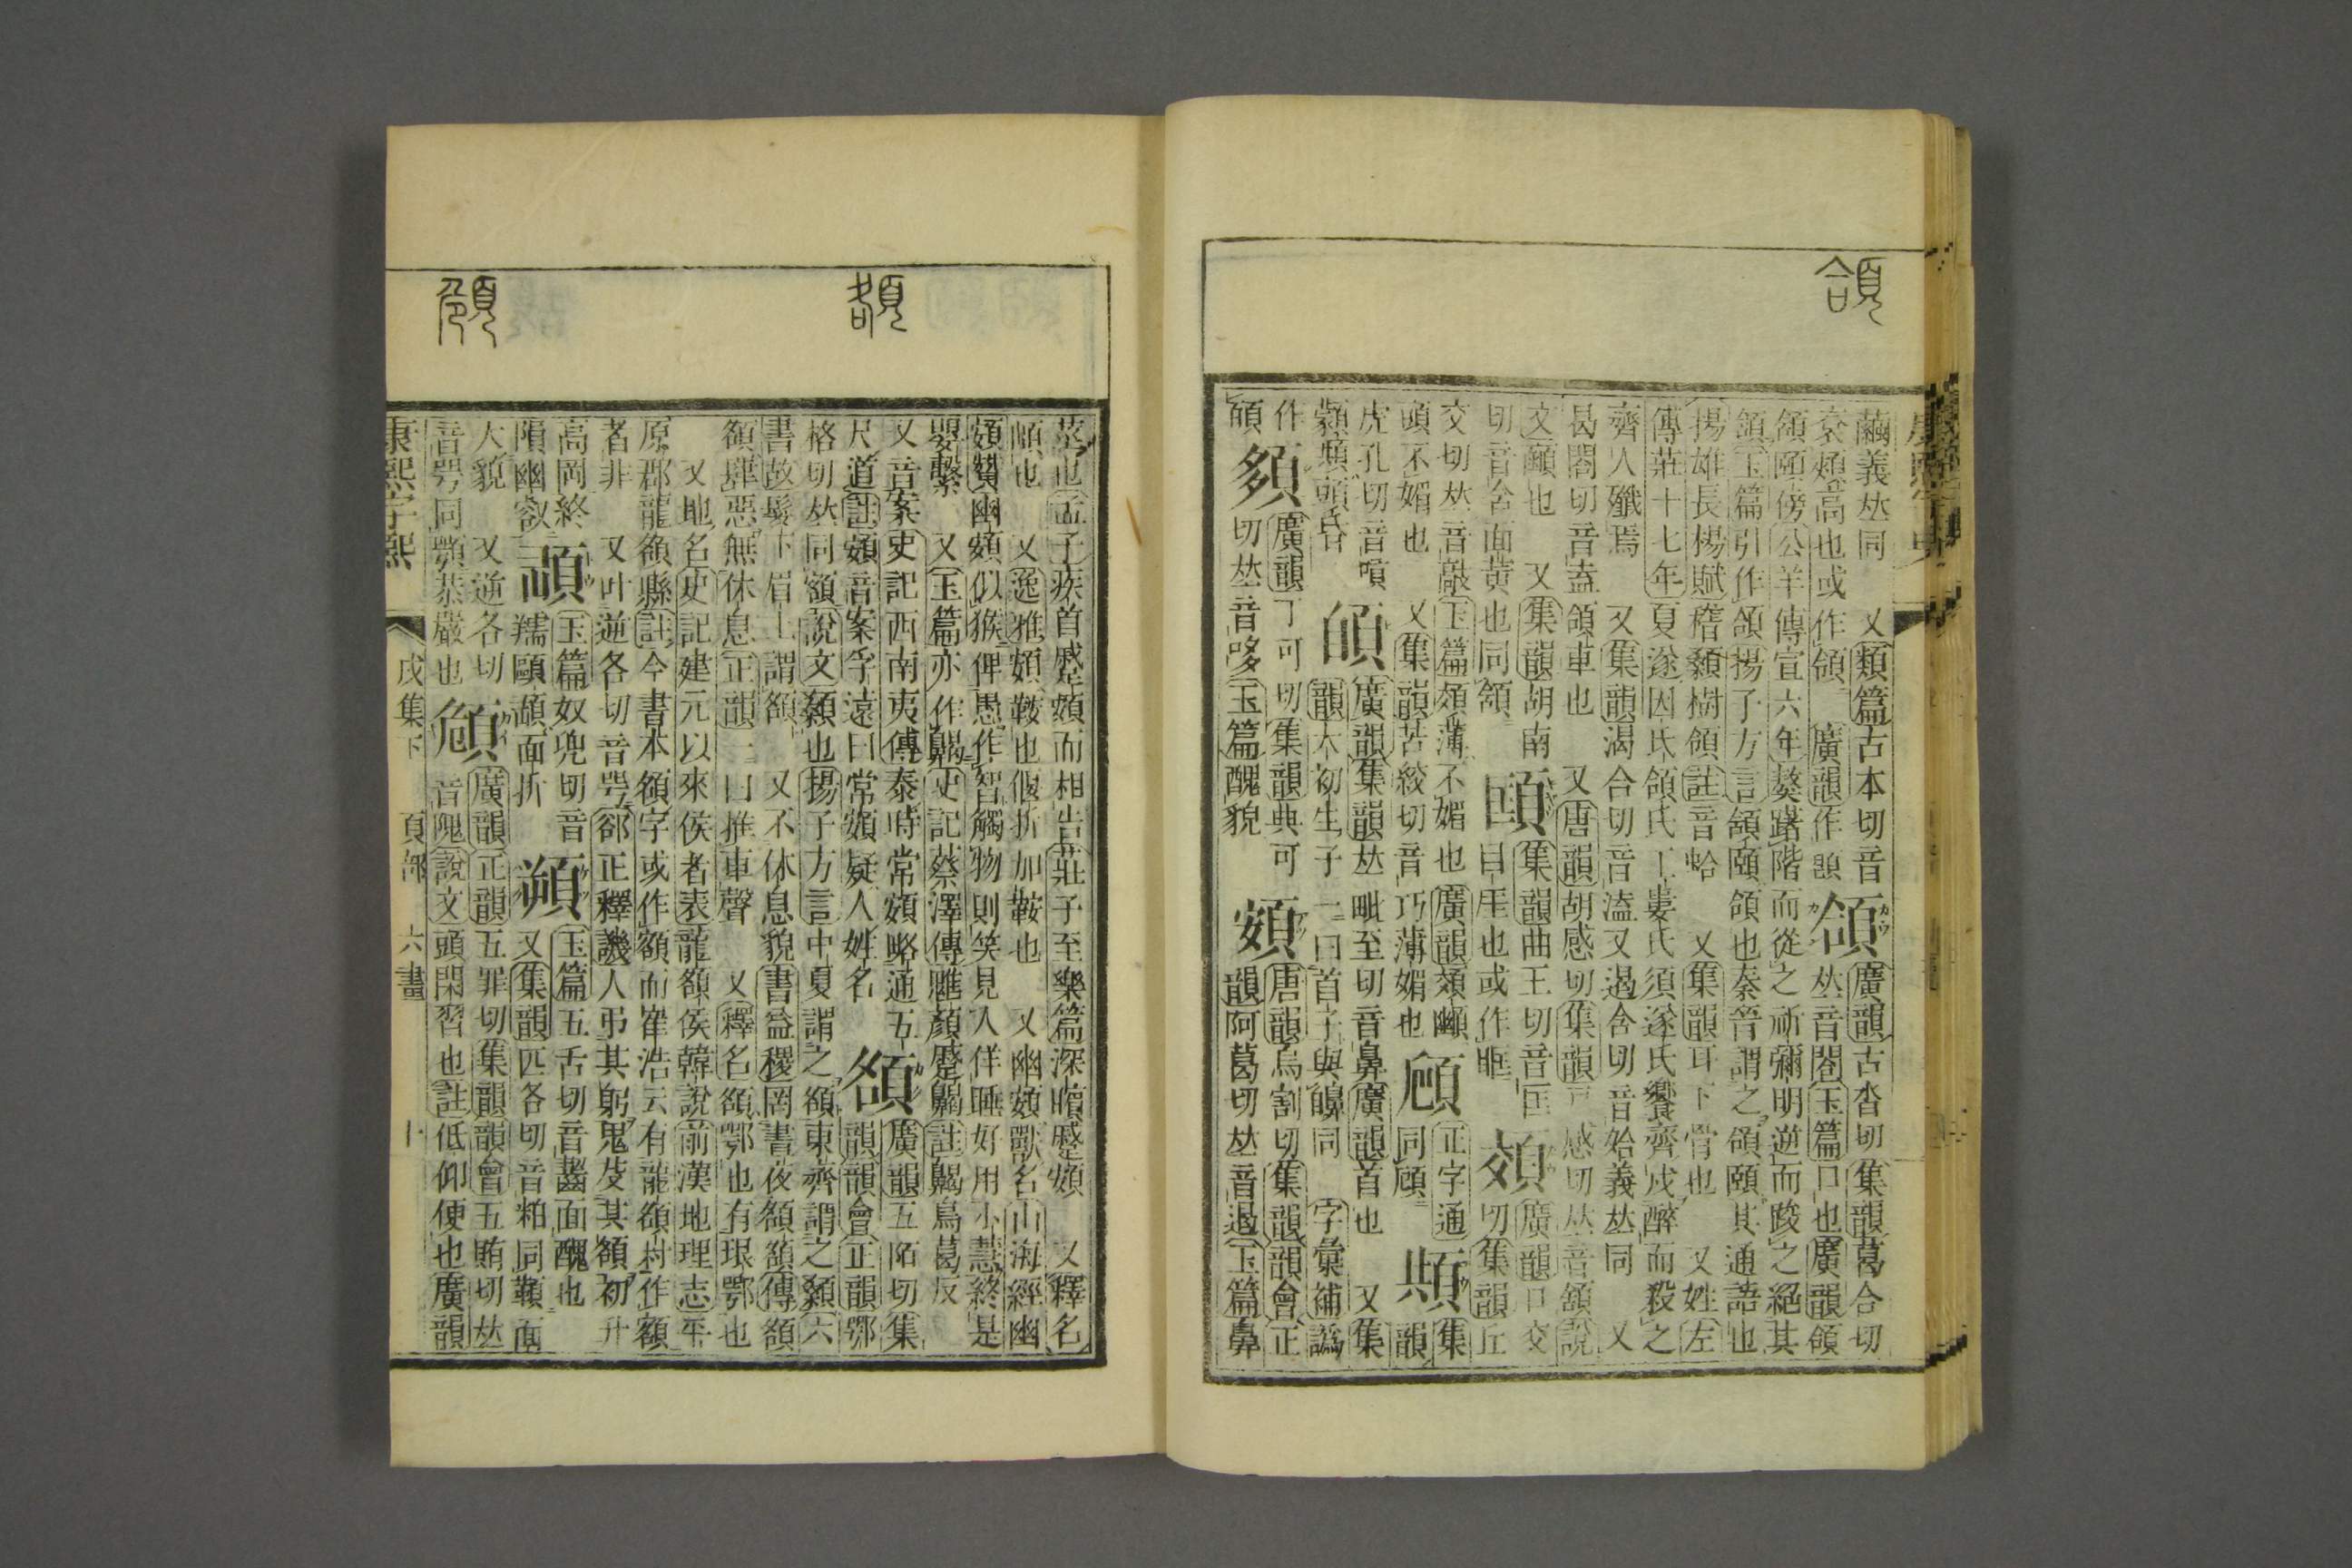 頜
繭義𠀤同　又類篇古本切音
頜
廣韻古沓切集韻葛合切
𠀤音閤玉篇口也廣韻頜
頜頤傍公羊傳宣六年獒躇階而從之祈彌明逆而踆之絕其
頷玉篇引作頜揚子方言頷頤頜也秦晉謂之頜頤其通語也
揚雄長楊賦稽顙樹頜註音蛤　又集韻耳下骨也　又姓左
傳莊十七年夏遂因氏頜氏工婁氏須遂氏饗齊戍醉而殺之
齊人殲焉　又集韻渴合切音溘又遏合切音姶義𠀤同　又
曷閤切音盍頜車也　又唐韻胡感切集韻戸感切𠀤音頷說
文顄也　又集韻胡南
切音含面黃也同頷
集韻曲王切音匡
目匡也或作眶
廣韻口交
切集韻丘
交切𠀤音敲玉篇頝薄不媚也廣韻頝顤
頭不媚也　又集韻苦絞切音巧薄媚也
正字通
同顧
集
韻
虎孔切音嗊
頯頭昏
廣韻集韻𠀤毗至切音鼻廣韻首也　又集
韻木初生子一曰首子與𩕳同　字彙補譌
作
頟
廣韻丁可切集韻典可
切𠀤音哆玉篇醜貌
頞
唐韻烏割切集韻韻會正
韻阿葛切𠀤音遏玉篇鼻
頞
頟
莖也孟子疾首蹙頞而相告莊子至樂篇深矉蹙頞　又釋名
頞鞍也偃折加鞍也　又幽頞獸名山海經幽
頞幽頞似猴俾愚作智觸物則笑見人佯睡好用小慧終是
嬰繫　又玉篇亦作齃史記蔡澤傳魋顏蹙齃註齃烏葛反
又音案史記西南夷傳秦時常頞略通五
尺道註頞音案字遠曰常頞疑人姓名
頟
廣韻五陌切集
韻韻會正韻鄂
格切𠀤同額說文顙也揚子方言中夏謂之頟東齊謂之顙六
書故髮下眉上謂頟　又不休息貌書益稷罔晝夜頟頟傳頟
頟肆惡無休息正韻一曰推車聲　又釋名頟鄂也有垠鄂也
又地名史記建元以來侯者表龍頟侯韓說前漢地理志平
原郡龍頟縣註今書本頟字或作額而崔浩云有龍頟村作額
者非　又叶逆各切音咢郤正釋譏人弔其躬鬼芟其頟初升
高岡終
隕幽谿
玉篇奴兜切音
羺䫜面折
玉篇五舌切音齧面醜也
又集韻匹各切音粕同䪙面
大貌　又逆各切
音咢同顎恭嚴也
頠
廣韻正韻五罪切集韻韻會五賄切𠀤
音隗說文頭閑習也註低仰便也廣韻
康熙字典　戌集下　頁部　六畫　十